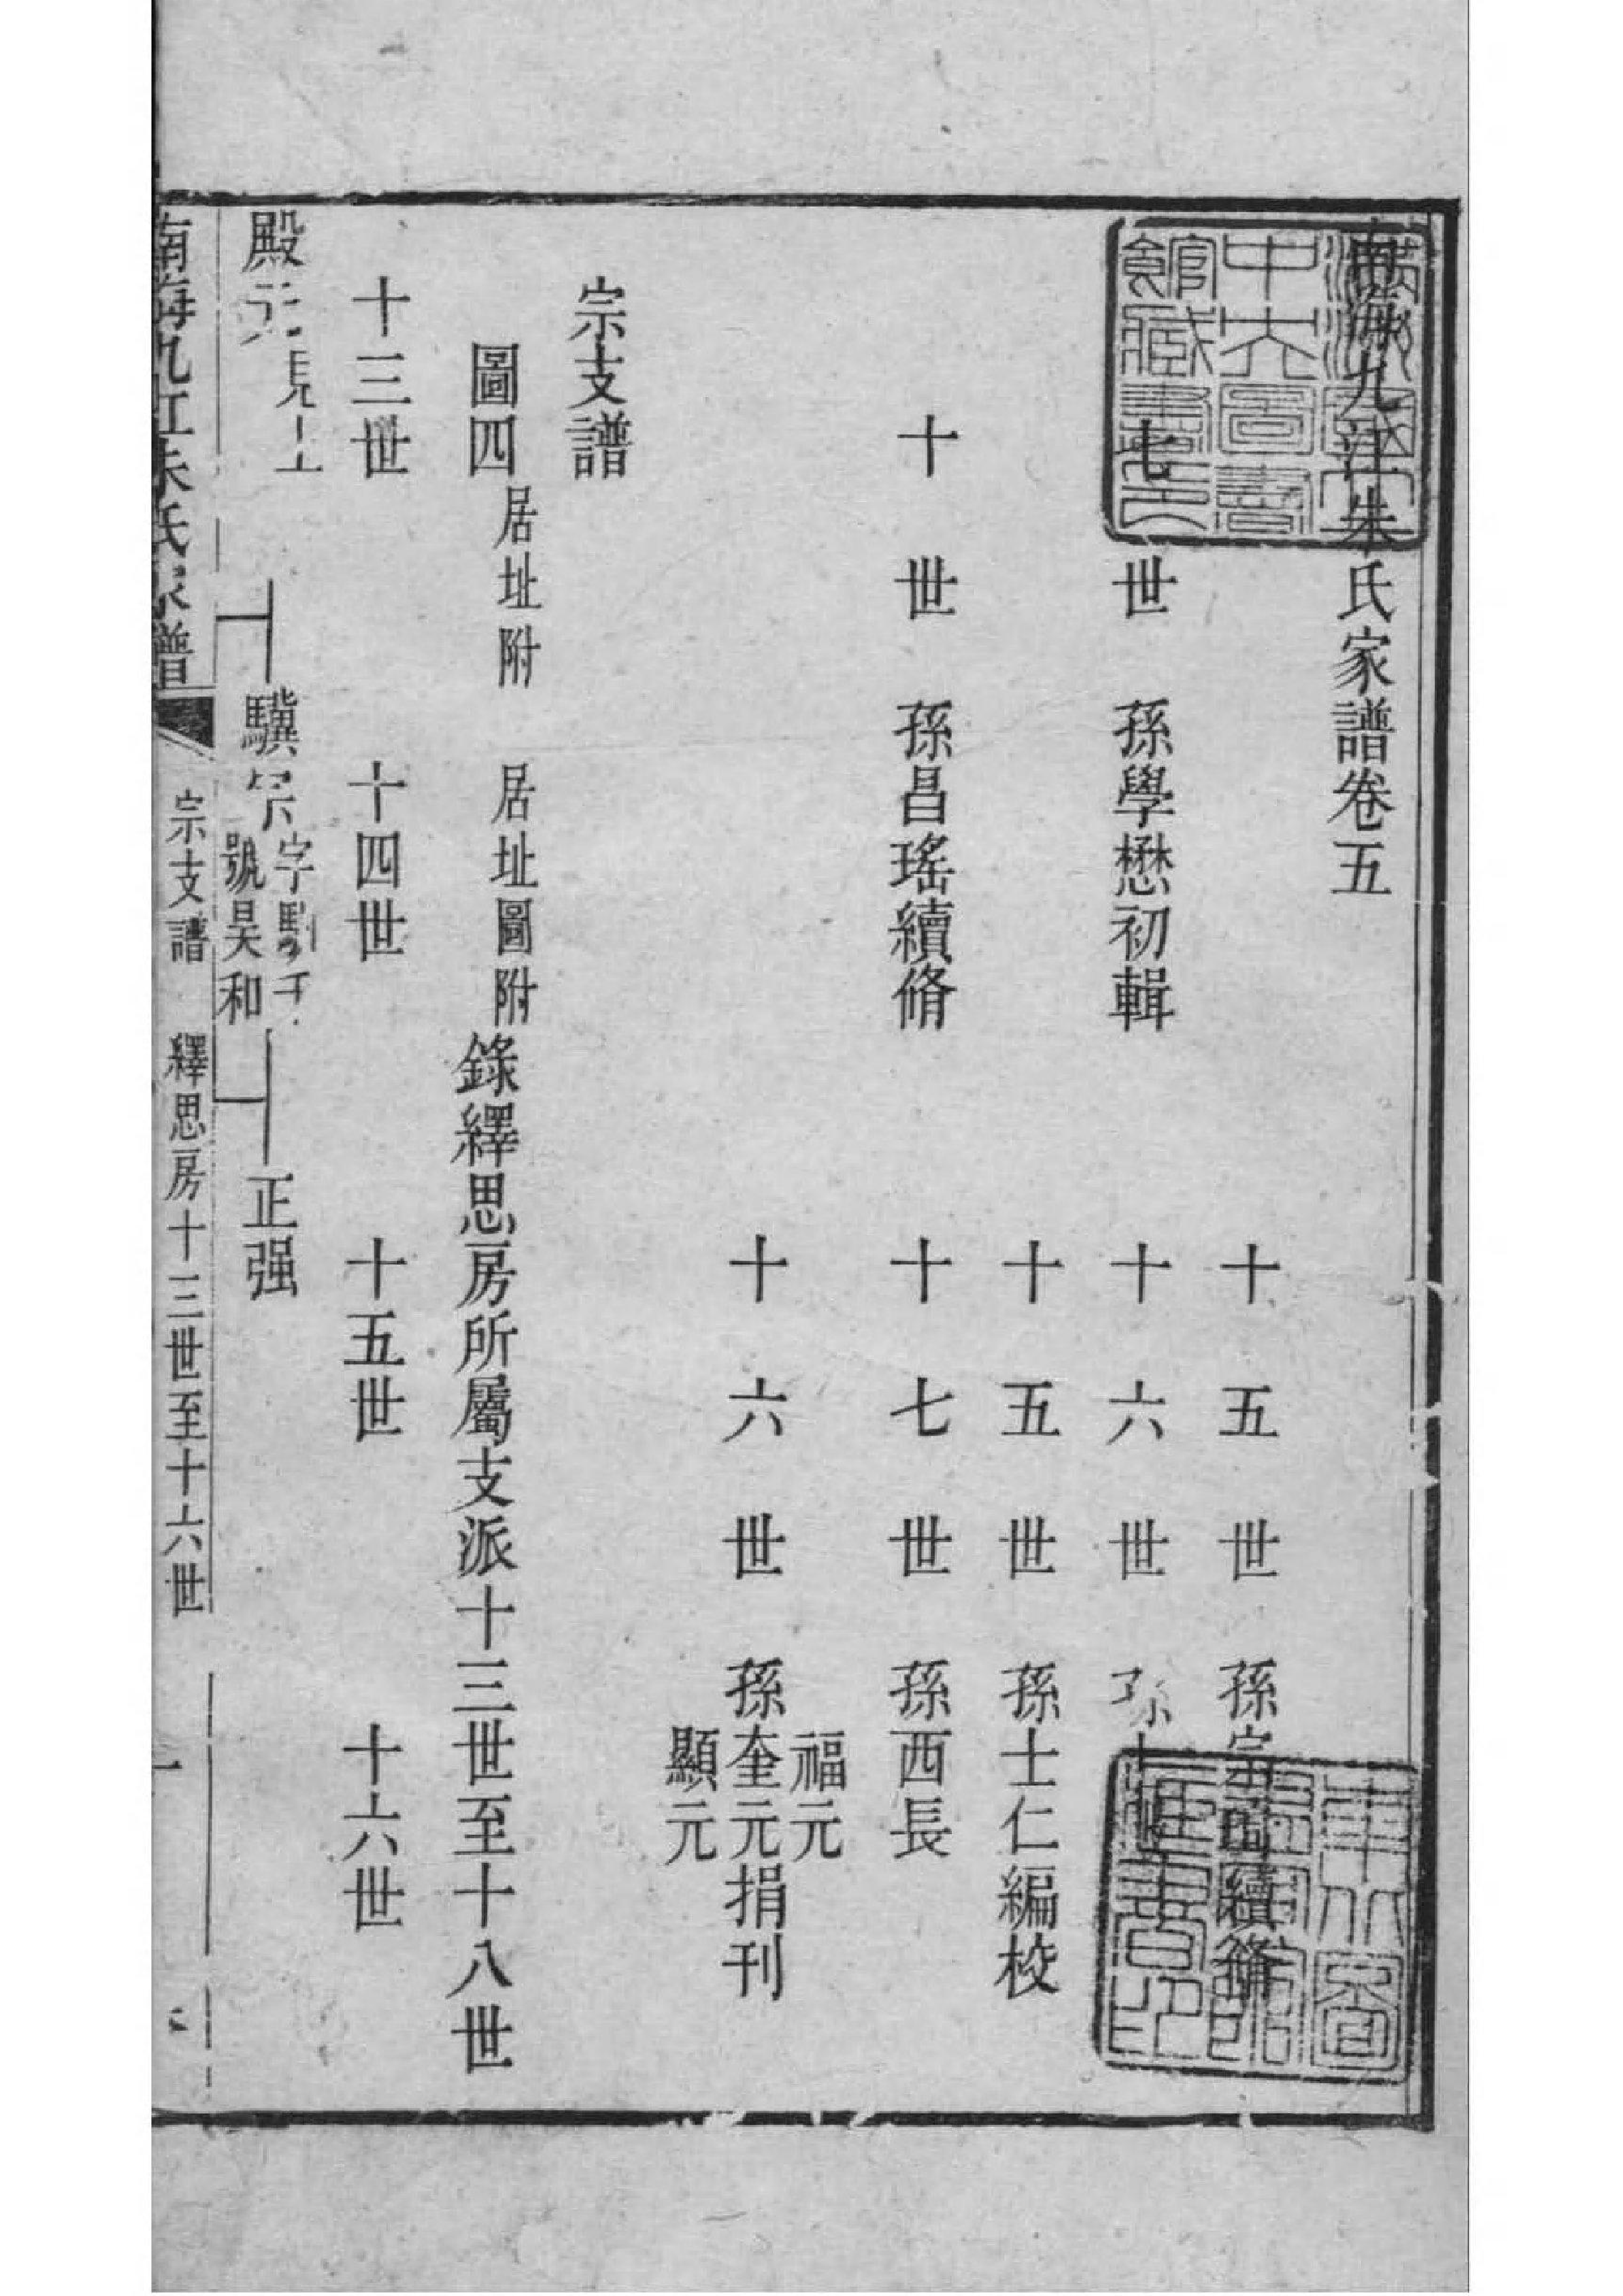 南海九江朱氏家譜卷五
十五世孫宗琦續脩
七世孫學懋初輯
十六世孫士
十五世孫士仁編校
十世孫昌瑤續脩
十七世孫西長
十六世孫福元奎元顯元捐刊
宗支譜
圖四 居址附 居址圖附 錄繹思房所屬支派十三世至十八世
十三世 十四世 十五世 十六世
殿元見上 驥宗 字 千 號昊和 正强
南海九江朱氏家譜 宗支譜 繹思房十三世至十六世 一